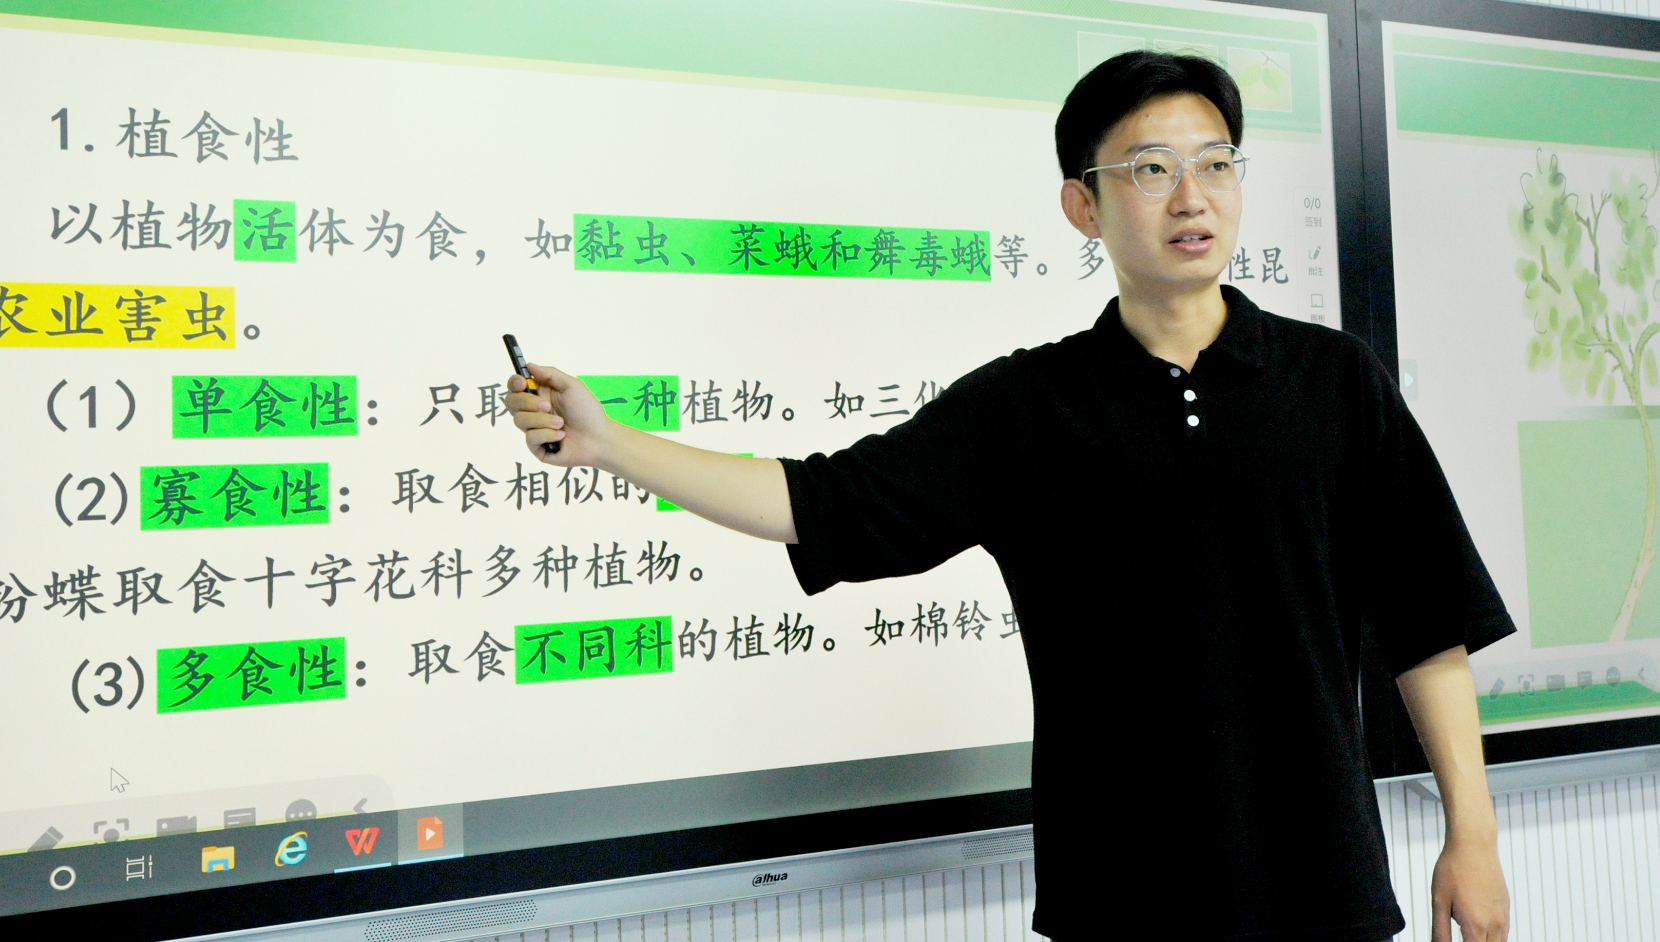 1. 植食性
以植物活体为食，如黏虫、菜蛾和舞毒蛾等。多性昆
农业害虫。
（1）单食性：只取一种植物。如三化
(2)寡食性：取食相似的
粉蝶取食十字花科多种植物。
(3)多食性：取食不同科的植物。如棉铃虫
0/0
签到
批注
alhua